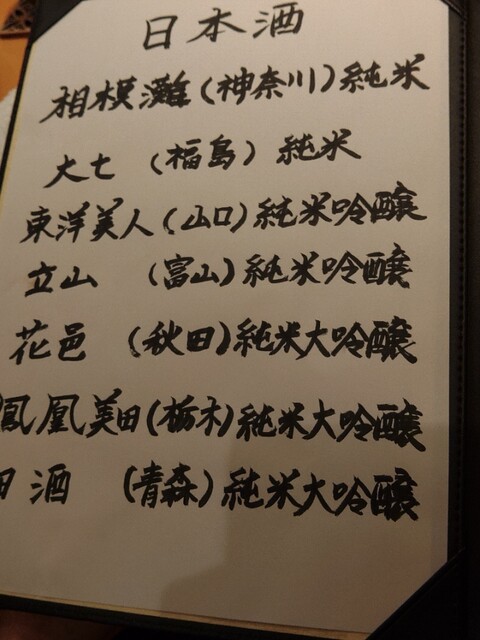 日本酒
相模灘(神奈川)純米
大七 (福島) 純米
東洋美人(山口)純米吟醸
立山 (富山)純米吟醸
花邑 (秋田)純米大吟醸
鳳凰美田(栃木)純米大吟醸
田酒 (青森)純米大吟醸